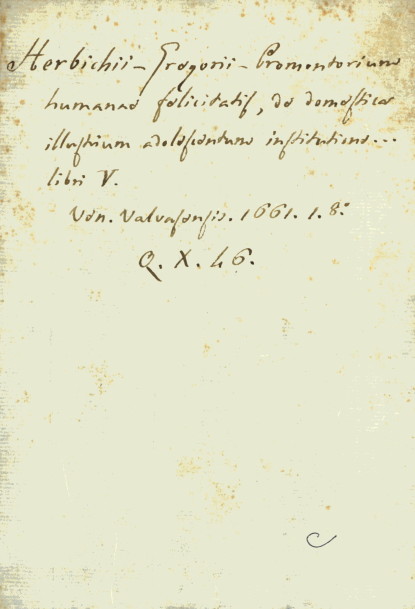 Herbichii - Gregorii - Promontorium
humanae felicitatis, de domestica
illustrium adolescentum institutione...
libri V.
Ven. Valvasensis. 1661. 1. 8.°
Q. X. 46.